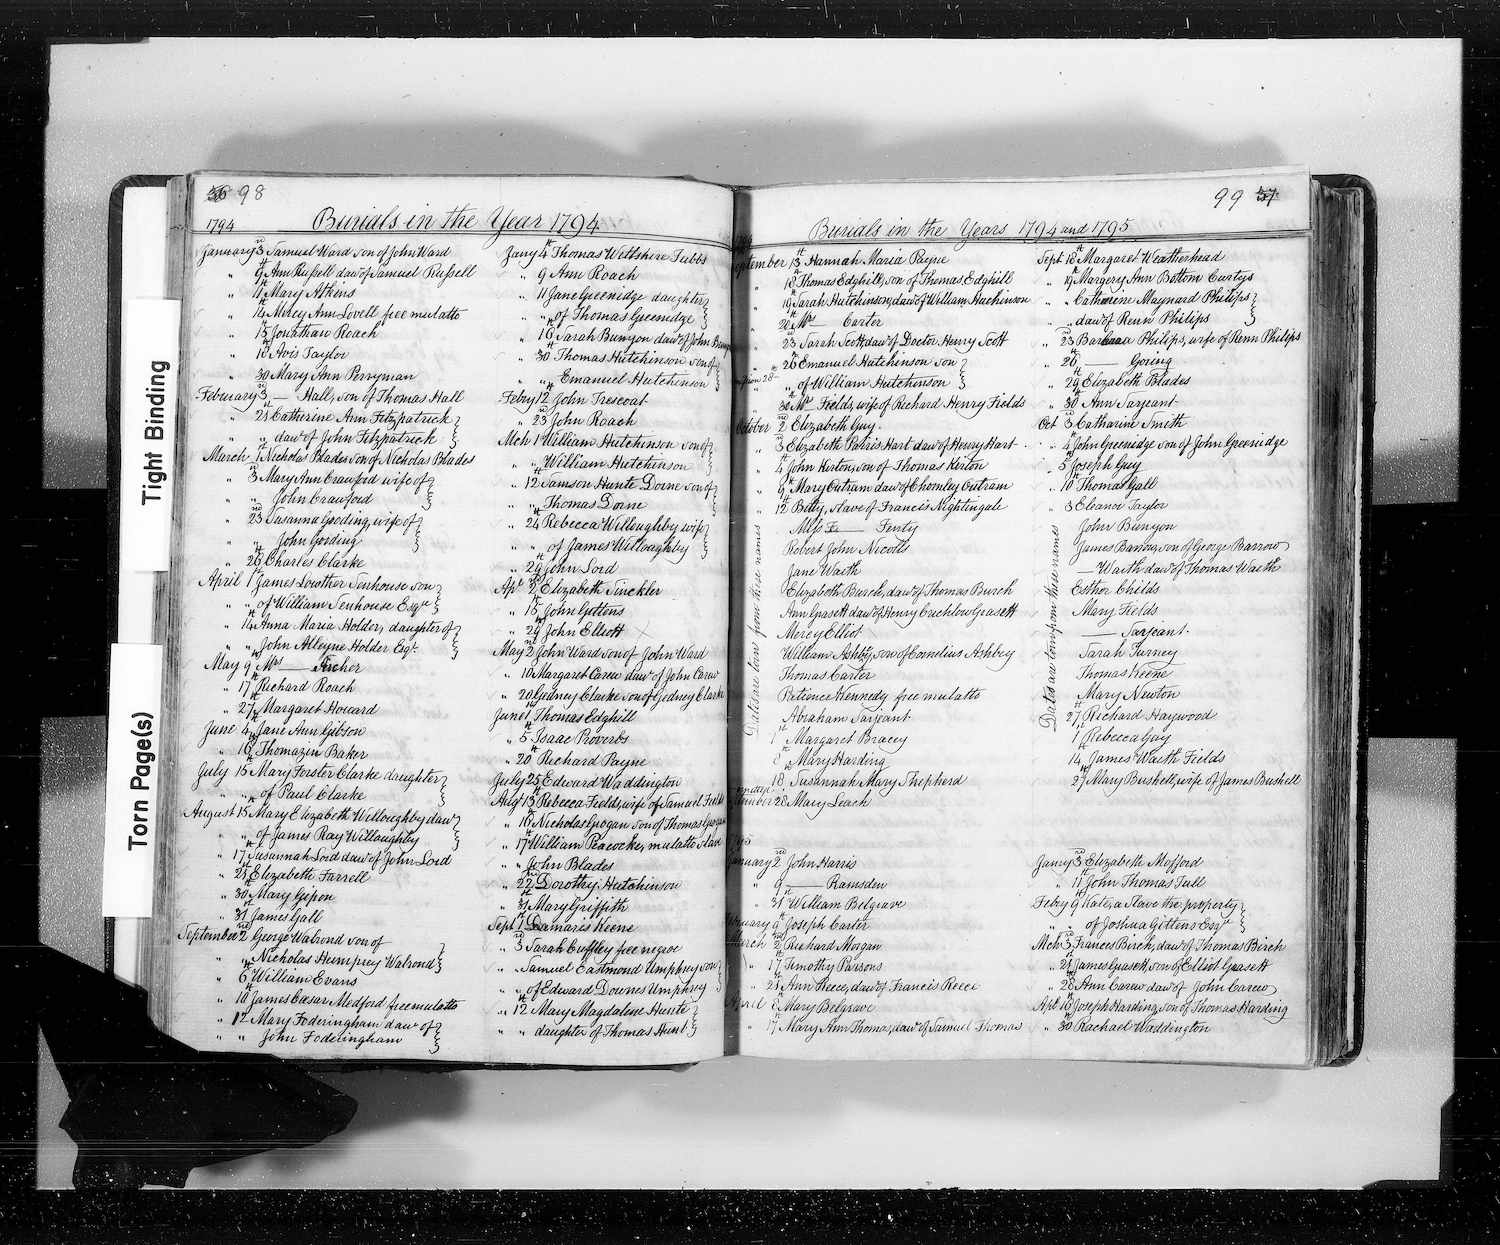 Tight Binding
Torn Page(s)
98
1794
Burials in the Year 1794
January 3rd Samuel Ward son of John Ward
" 9th Ann Russell daw of Samuel Russell
" 11th Mary Atkins
" 14th Mercy Ann Lovell free mulatto
" 15th Jonathan Roach
" 18th Avis Taylor
" 30th Mary Ann Perryman
February 3rd — Hall, son of Thomas Hall
" 21st Catherine Ann Fitzpatrick
" " daw of John Fitzpatrick
March 1st Nicholas Blades son of Nicholas Blades
" 3rd Mary Ann Crawford wife of
" " John Crawford
" 23rd Susanna Gooding, wife of
" " John Gooding
" 26th Charles Clarke
April 1st James Lowther Senhouse son
" " of William Senhouse Esqr
" 14th Anna Maria Holder, daughter of
" " John Alleyne Holder Esqr
May 9th Mrs — Fischer
" 17th Richard Roach
" 27th Margaret Howard
June 4th Jane Ann Gibson
" 16th Thomazin Baker
July 15th Mary Forster Clarke daughter
" " of Paul Clarke
August 15th Mary Elizabeth Willoughby daw
" " of James Ray Willoughby
" 17th Susannah Lord daw of John Lord
" 21st Elizabeth Farrell
" 30th Mary Gibson
" 31st James Gall
September 2nd George Walrond son of
" " Nicholas Humprey Walrond
" 6th William Evans
" 10th James Cæsar Medford free mulatto
" 12th Mary Foderingham daw of
" " John Foderingham
Jany 4th Thomas Wiltshire Tubbs
" 9th Ann Roach
" 11th Jane Greenidge daughter
" " of Thomas Greenidge
" 16th Sarah Bunyon daw of John
" 30th Thomas Hutchinson son of
" " Emanuel Hutchinson
Feby 12th John Trescoat
" 23rd John Roach
Mch 1st William Hutchinson son of
" " William Hutchinson
" 12th Samson Hunte Dorne son of
" " Thomas Dorne
" 24th Rebecca Willoughby wife
" " of James Willoughby
" 29th John Lord
Apl 2nd Elizabeth Sinckler
" 15th John Gittens
" 29th John Elliott
May 2nd John Ward son of John Ward
" 10th Margaret Carew daw of John Carew
" 20th Gedney Clarke son of Gedney Clarke
June 1st Thomas Edghill
" 5th Isaac Proverbs
" 20th Richard Payne
July 25th Edward Waddington
Augt 13th Rebecca Fields, wife of Samuel Fields
" 16th Nicholas Grogan son of Thomas Grogan
" 17th William Peacocke, mulatto slave
" " John Blades
" 22nd Dorothy Hutchinson
" 31st Mary Griffith
Sept 1st Damaris Keene
" 3rd Sarah Cuffley free negroe
" " Samuel Eastmond Umphrey son
" " of Edward Downes Umphrey
" 12th Mary Magdalene Hunte
" " daughter of Thomas Hunt
99
Burials in the Years 1794 and 1795
September 13th Hannah Maria Payne
" 18th Thomas Edghill, son of Thomas Edghill
" 19th Sarah Hutchinson, daw of William Huchinson
" 20th Mrs — Carter
" 23rd Sarah Scott daw of Doctor Henry Scott
" 26th Emanuel Hutchinson son
" " of William Hutchinson
" 30th Mrs Fields, wife of Richard Henry Fields
October 2nd Elizabeth Guy
" 3rd Elizabeth Parris Hart daw of Henry Hart
" 4th John Kirton, son of Thomas Kirton
" 9th Mary Outram daw of Chomley Outram
" 12th Betty, slave of Francis Nightingale
Miss — Fenty
Robert John Nicolls
Jane Waith
Elizabeth Burch, daw of Thomas Burch
Ann Grasett daw of Henry Crichlow Grasett
Mercy Elliot
William Ashby, son of Cornelius Ashbey
Thomas Carter
Patience Kennedy free mulatto
Abraham Sarjeant
1st Margaret Bracey
8th Mary Harding
18 Susannah Mary Shepherd
28th Mary Leach
Dates are torn from these names
January 2nd John Harris
" 9th — Ramsden
" 31st William Belgrave
9th Joseph Carter
March 2nd Richard Morgan
" 17th Timothy Parsons
" 21st Ann Reece, daw of Francis Reece
April 8th Mary Belgrave
" 17th Mary Ann Thomas, daw of Samuel Thomas
Sept 18th Margaret Weatherhead
" 19th Margery Ann Bottom Curtys
" " Catharine Maynard Philips
" " daw of Renn Philips
" 23rd Barbara Philips, wife of Renn Philips
" 26th — Going
" 29th Elizabeth Blades
" 30th Ann Sarjeant
Oct 3rd Catharine Smith
" 4th John Greenidge son of John Greenidge
" 5th Joseph Guy
" 10th Thomas Gall
" 3 Eleanor Taylor
John Bunyon
James Barrow, son of George Barrow
— Waith daw of Thomas Waith
Esther Childs
Mary Fields
— Sarjeant
Sarah Furney
Thomas Keene
Mary Newton
27th Richard Haywood
1st Rebecca Gay
14th James Waith Fields
27th Mary Bushell, wife of James Bushell
Dates are torn from these names
Jany 3rd Elizabeth Mofford
" 11th John Thomas Tull
Feby 9th Kate, a Slave the property
" " of Joshua Gittens Esqr
Mch 3rd Frances Birch, daw of Thomas Birch
" 21st James Grasett, son of Elliot Grasett
" 28th Ann Carew daw of John Carew
Apl 16th Joseph Harding, son of Thomas Harding
" 30th Rachael Waddington